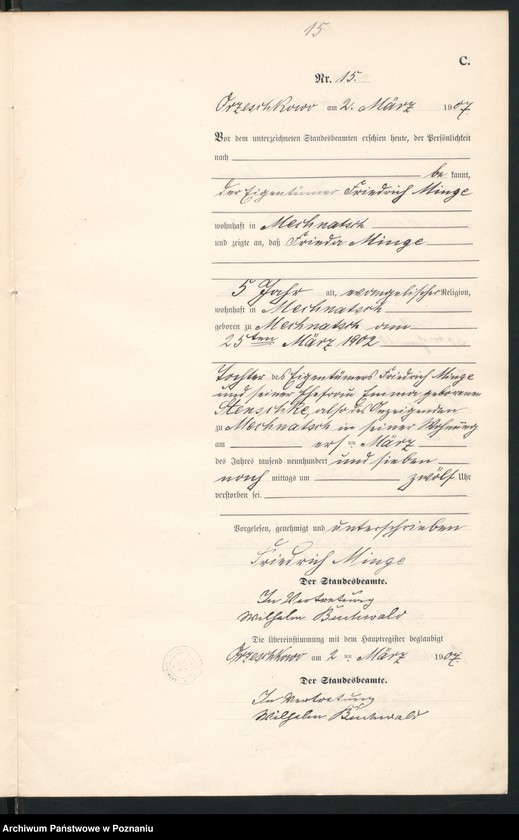 15
C.
Nr. 15.
Orzeschkowo am 2. März 1907.
Vor dem unterzeichneten Standesbeamten erschien heute, der Persönlichkeit
nach
be kannt,
der Eigentümer Friedrich Minge
wohnhaft in Mechnatsch
und zeigte an, daß Frieda Minge
5 Jahr alt, evangelischer Religion,
wohnhaft in Mechnatsch
geboren zu Mechnatsch am
25ten März 1902
Tochter des Eigentümers Friedrich Minge
und seiner Ehefrau Emma geborenen
Stenschke, also des Anzeigenden
zu Mechnatsch in seiner Wohnung
am ersten März
des Jahres tausend neunhundert und sieben
nach mittags um zwölf Uhr
verstorben sei.
Vorgelesen, genehmigt und unterschrieben
Friedrich Minge
Der Standesbeamte.
In Vertretung
Wilhelm Buchwald
Die Übereinstimmung mit dem Hauptregister beglaubigt
Orzeschkowo am 2 ten März 1907.
Der Standesbeamte.
In Vertretung
Wilhelm Buchwald
Archiwum Państwowe w Poznaniu